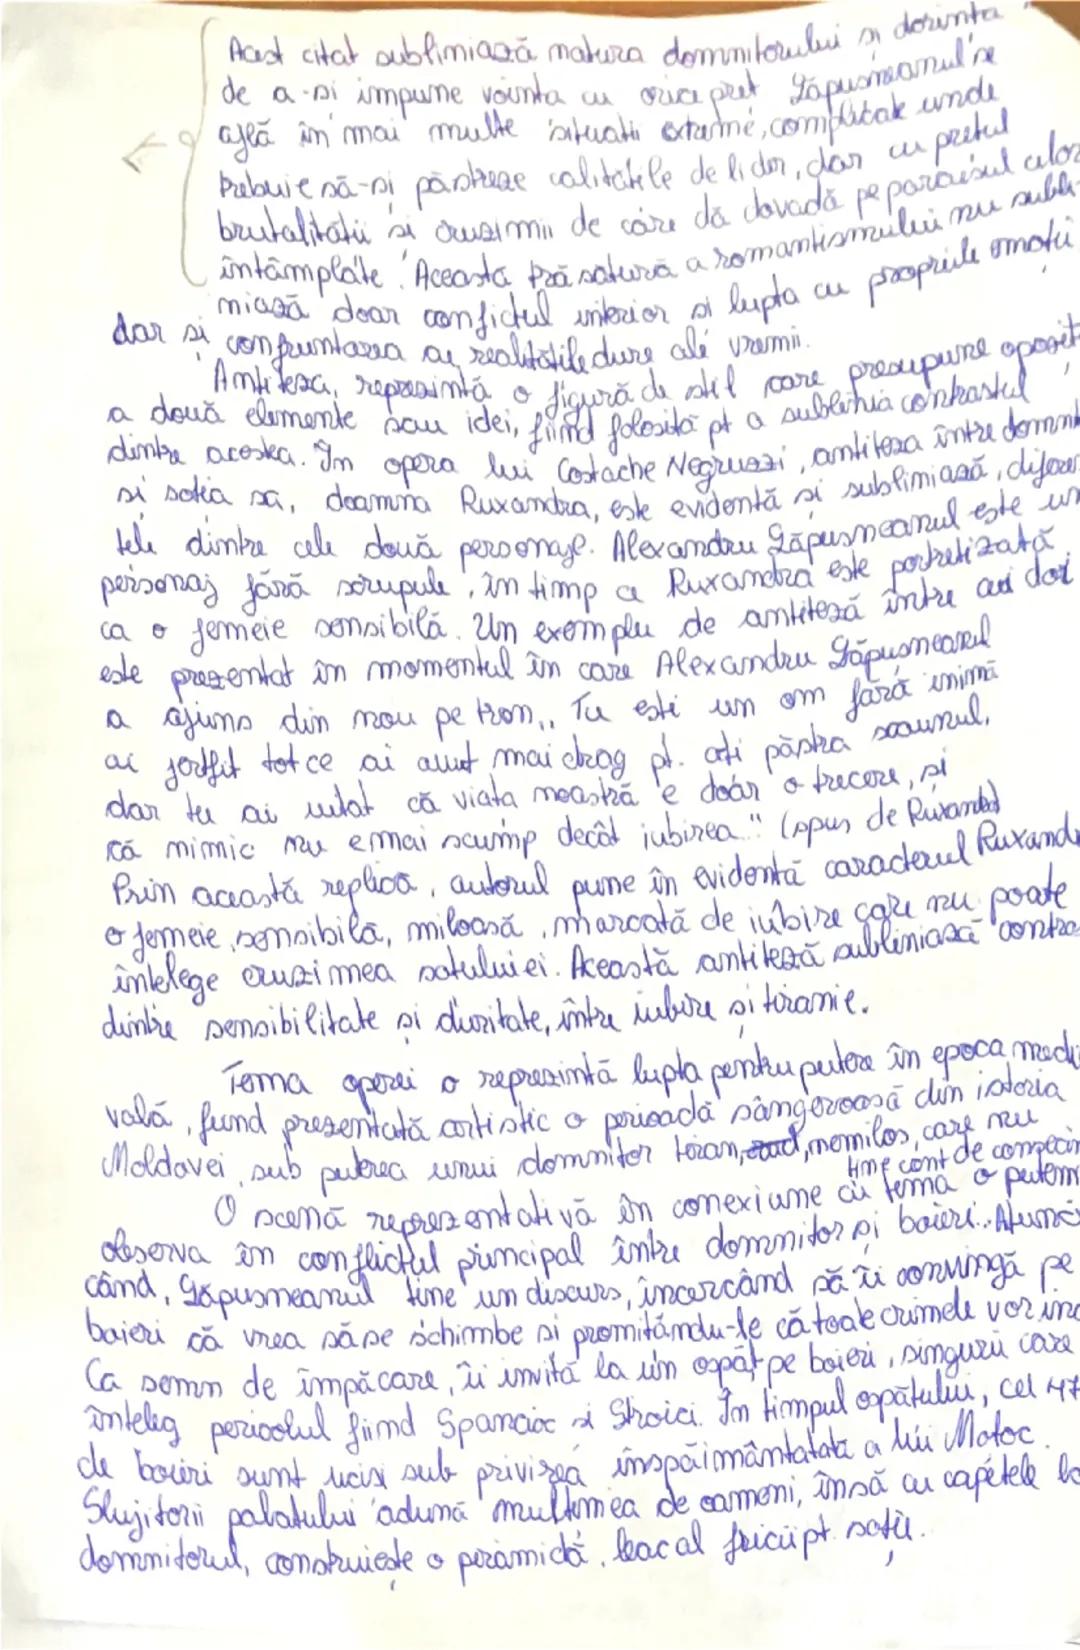 Acest citat subliniază natura domnitorului și dorința
de a-și impune voința cu orice preț Lăpușneanul se
află în mai multe situații extreme, complicate unde
trebuie să-și păstreze calitățile de lider, dar cu prețul
brutalității și cruzimii de care dă dovadă pe parcisul celor
întâmplate. Această trăsătură a romantismului nu subli-
niază doar conflictul interior și lupta cu propriile emoții
dar și confruntarea cu realitățile dure ale vremii.
Antiteza, reprezintă o figură de stil care presupune opoziț
a două elemente sau idei, fiind folosită pt a sublinia contrastul
dintre acestea. În opera lui Costache Negruzzi, antiteza între domni
și soția sa, doamna Ruxandra, este evidentă și subliniază, difere
țele dintre cele două personaje. Alexandru Lăpușneanul este un
personaj fără scrupule, în timp ce Ruxandra este portretizată
ca o femeie sensibilă. Un exemplu de antiteză între cei doi
este prezentat în momentul în care Alexandru Lăpușneanul
a ajuns din nou pe tron „Tu ești un om fără inimă
ai jertfit tot ce ai avut mai drag pt. ați păstra scaunul,
dar tu ai uitat că viața noastră e doar o trecere, și
că nimic nu e mai scump decât iubirea." (spus de Ruxandra)
Prin această replică, autorul pune în evidență caracterul Ruxand
o femeie sensibilă, miloasă, marcată de iubire care nu poate
înțelege cruzimea soțului ei. Această antiteză subliniază contra
dintre sensibilitate și duritate, între iubire și tiranie.
Tema operei o reprezintă lupta pentru putere în epoca medi
vală, fiind prezentată artistic o perioadă sângeroasă din istoria
Moldavei, sub puterea unui domnitor tiran, nemilos, care nu
ține cont de consecin
O scenă reprezentativă în conexiune cu tema o putem
observa în conflictul principal între domnitor și boieri. Atunci
când, Lăpușneanul ține un discurs, încercând să îi convingă pe
boieri că vrea să se schimbe și promițându-le că toate crimele vor înc
Ca semn de împăcare, îi invită la un ospăț pe boieri, singurii care
înțeleg pericolul fiind Spancioc și Stroici. În timpul ospătului, cel 47
de boieri sunt uciși sub privirea înspăimântatată a lui Moțoc.
Slujitorii palatului adună mulțimea de oameni, însă cu capetele lo
domnitorul, construiește o piramidă, leac al fricii pt. soție.